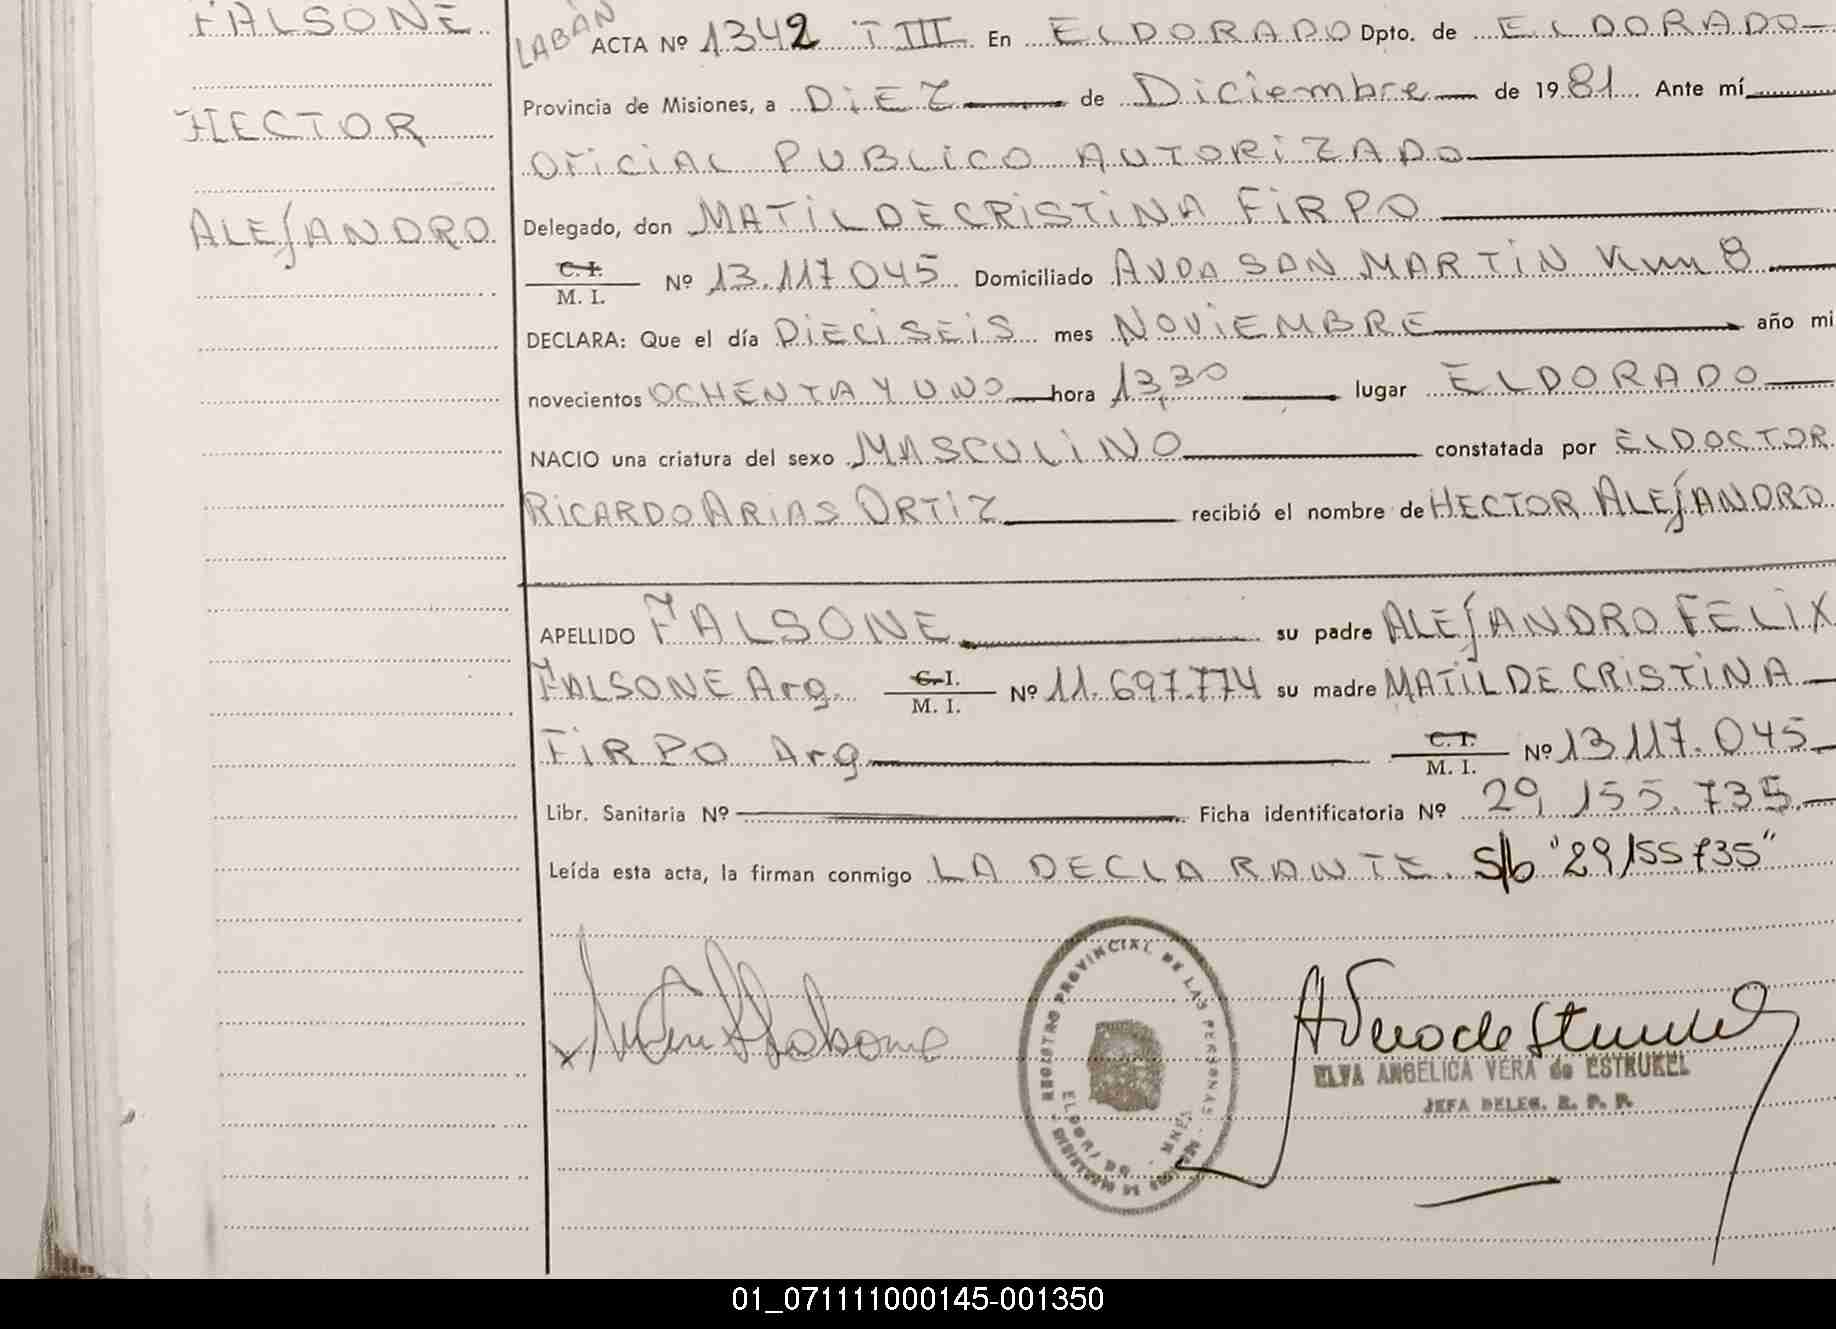 FALSONE
HECTOR
ALEJANDRO
LABAN
ACTA Nº 1342 T III En ELDORADO Dpto. de ELDORADO
Provincia de Misiones, a DIEZ de Diciembre de 1981 Ante mí
OFICIAL PUBLICO AUTORIZADO
Delegado, don MATILDE CRISTINA FIRPO
C. I.
M. I. Nº 13.117.045 Domiciliado AVDA SAN MARTIN Km 8
DECLARA: Que el día DIECISEIS mes NOVIEMBRE año mi
novecientos OCHENTA Y UNO hora 13,30 lugar ELDORADO
NACIO una criatura del sexo MASCULINO constatada por EL DOCTOR
RICARDO ARIAS ORTIZ recibió el nombre de HECTOR ALEJANDRO
APELLIDO FALSONE su padre ALEJANDRO FELIX
FALSONE Arg. C. I. M. I. Nº 11.697.774 su madre MATILDE CRISTINA
FIRPO Arg C. I. M. I. Nº 13117.045
Libr. Sanitaria Nº Ficha identificatoria Nº 29,155.735.
Leída esta acta, la firman conmigo LA DECLARANTE. S/b "29155735"
REGISTRO PROVINCIAL DE LAS PERSONAS
ELDORADO MNES
ELVA ANGELICA VERA de ESTRUKEL
JEFA DELEG. R. P. P.
01_071111000145-001350